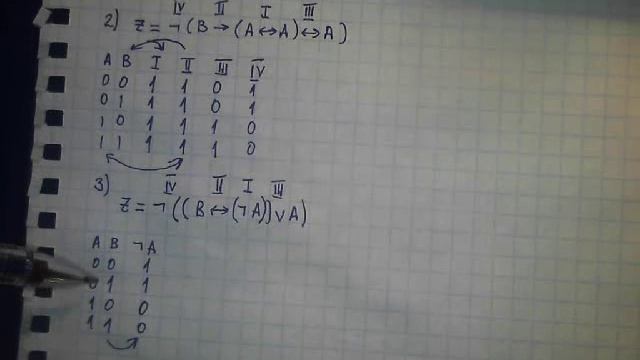 IV II I III
2) Z = ¬(B → (A ↔ A) ↔ A)
A B I II III IV
0 0 1 1 0 1
0 1 1 1 0 1
1 0 1 1 1 0
1 1 1 1 1 0
3) IV II I III
Z = ¬((B ↔ (¬A)) ∨ A)
A B ¬A
0 0 1
0 1 1
1 0 0
1 1 0